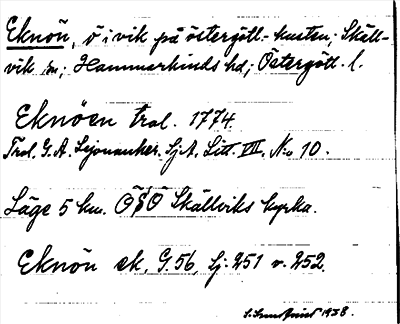 Eknön, ö i vik på östergötl. kusten; Skäll-
vik sn; Hammarkinds hd; Östergötl. l.
Eknöen trol. 1774.
Trol. G. A. Sjökarter. Litt. VIII. No 10.
Läge 5 km. OSO Skällviks kyrka.
Eknön ek. G. 56, Sj: 251 v. 252.
1938.